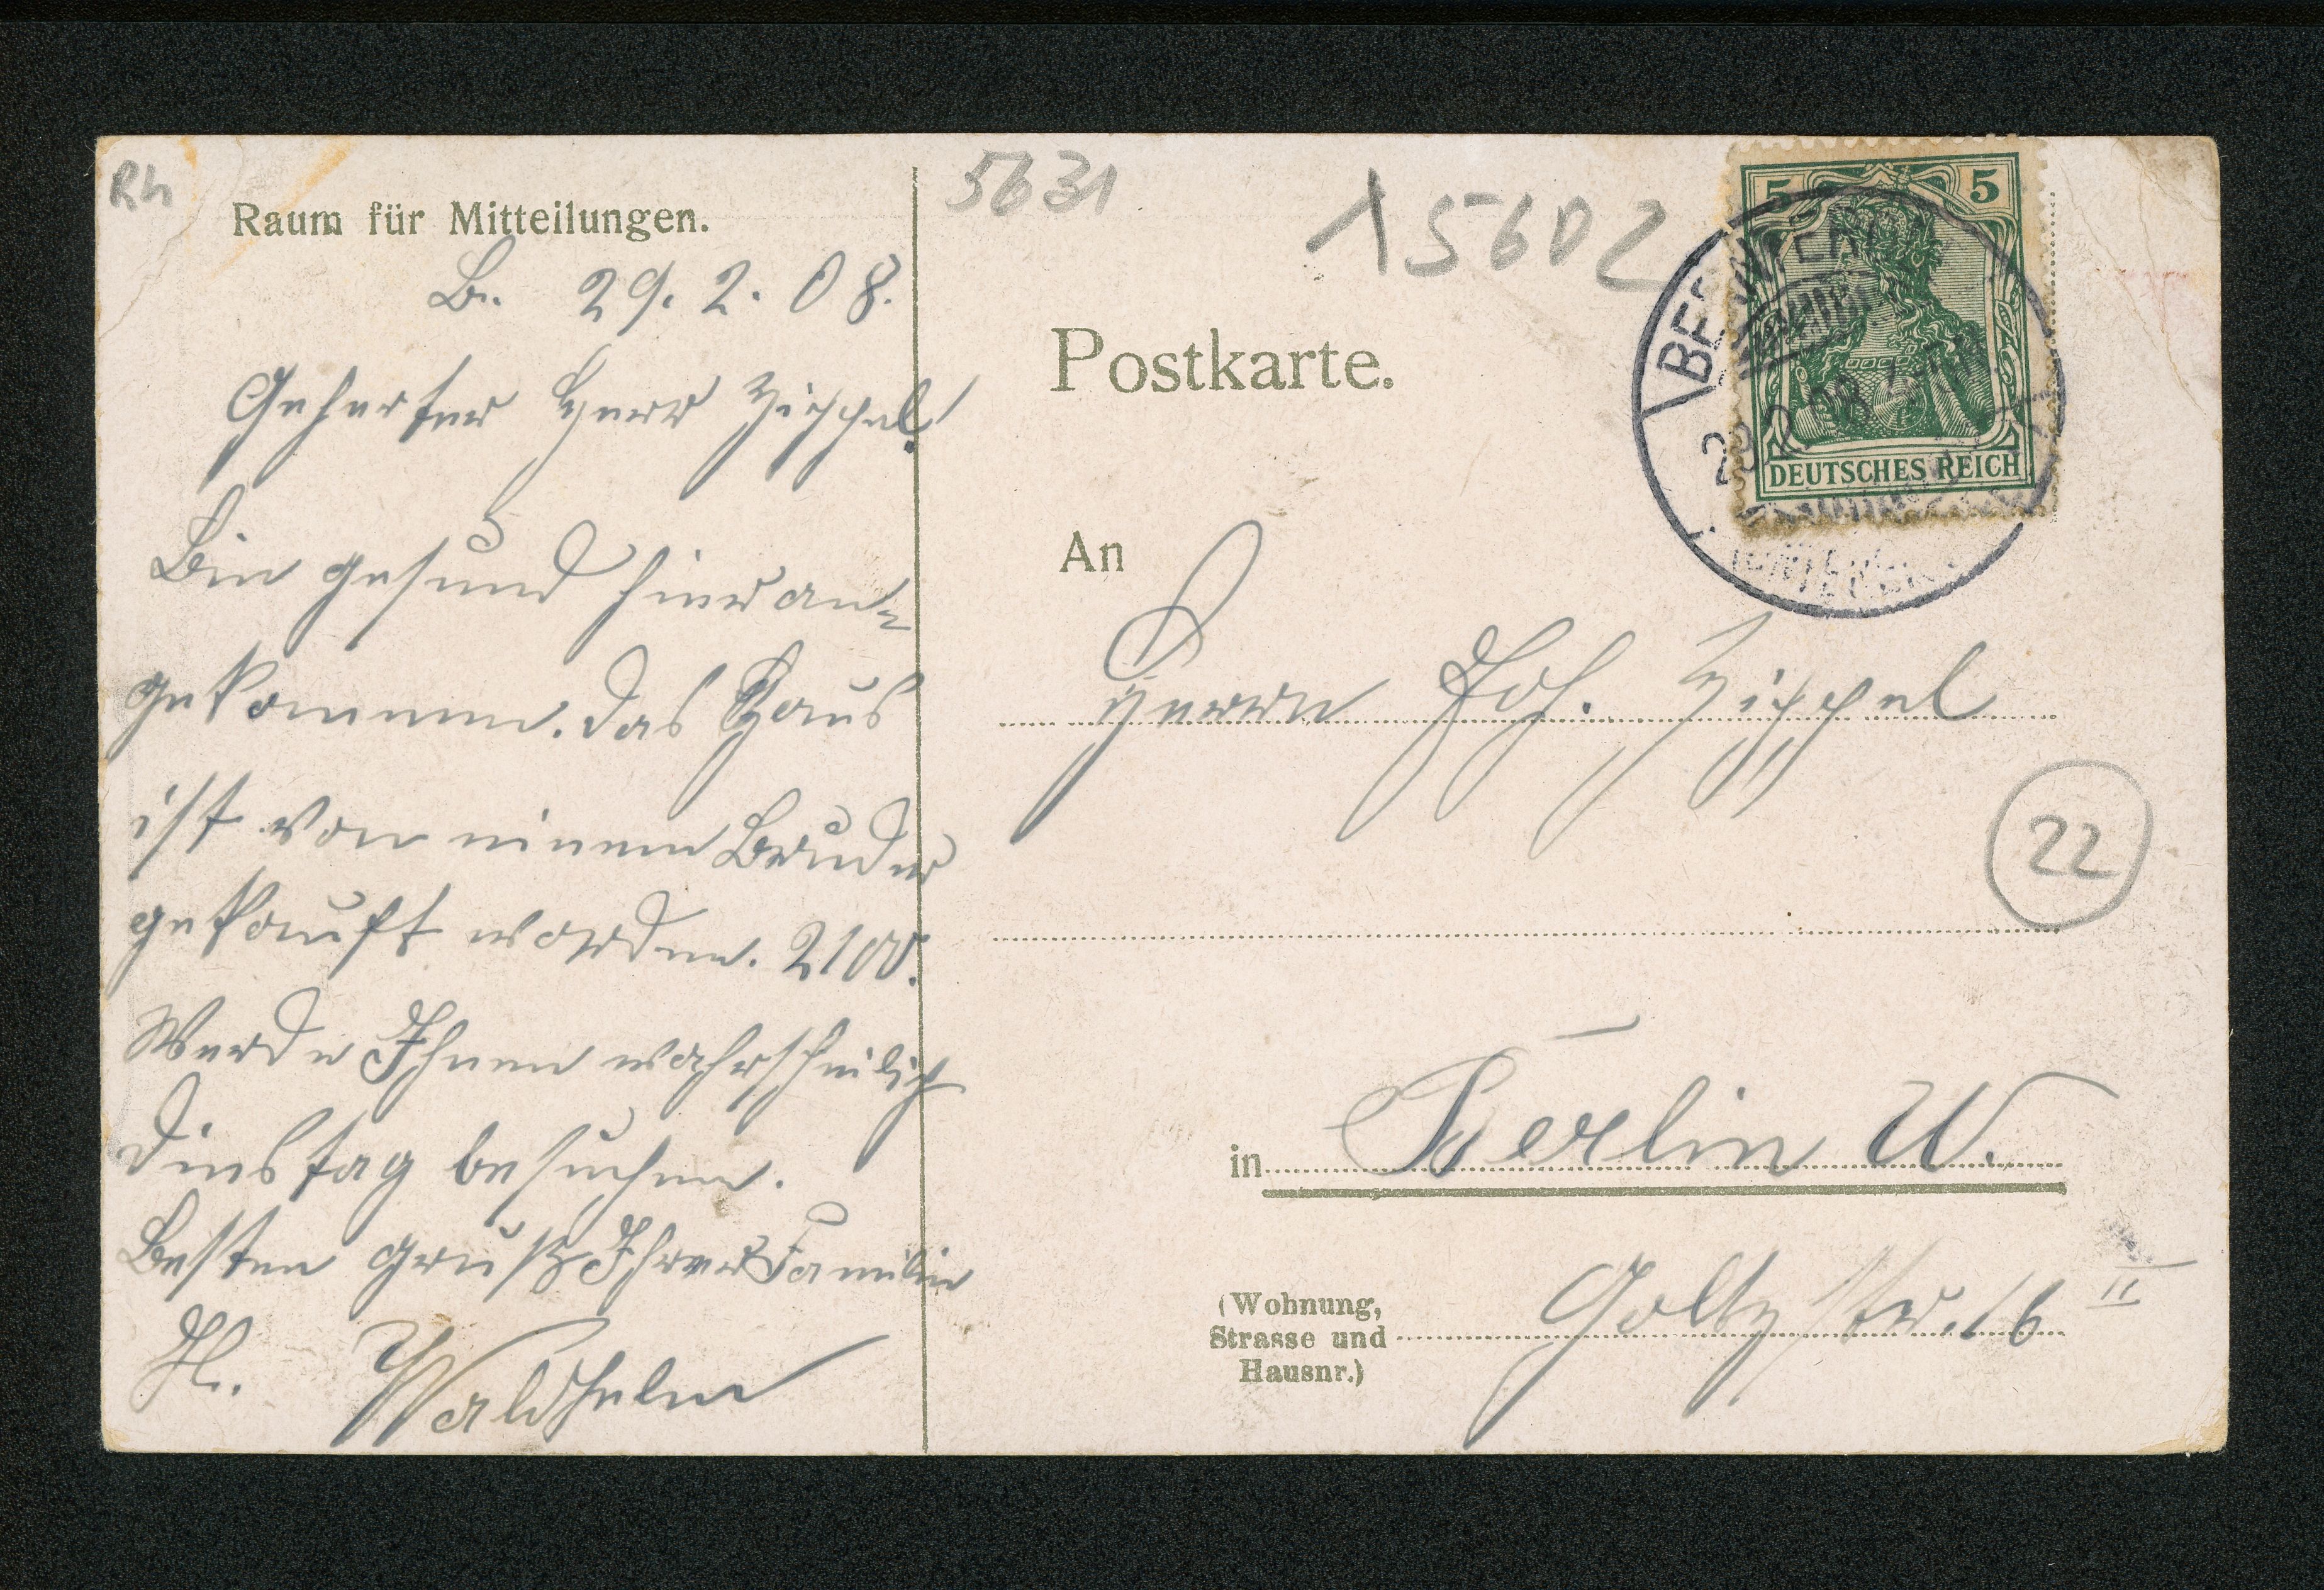 Rh
Raum für Mitteilungen.
B. 29. 2. 08.
Geherter Herr Zippel!
Bin gesund hier an-
gekommen. das Haus
ist von einem Bruder
gekauft worden. 2100.
Werde Ihnen wahrscheilich
Dinstag besuchen.
Besten Gruß Ihrer Familie
H. Waldhelm
5631
15602
Postkarte.
5 5
DEUTSCHES REICH
An
Herrn Joh. Zippel
22
in Berlin W.
(Wohnung,
Strasse und
Hausnr.)
Goltzstr. 16 II